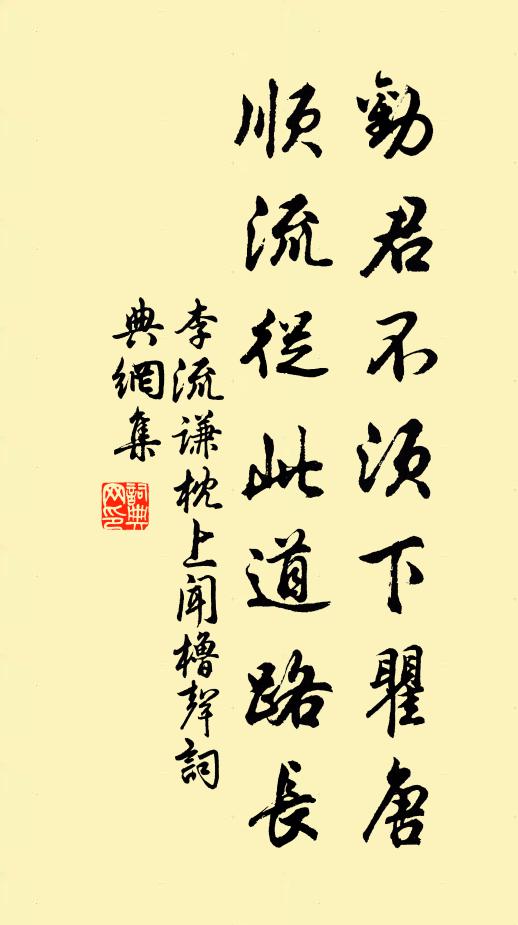 勸君不須下瞿唐
順流從此道路長
李流謙枕上聞櫓聲詞
典網集
詞典網印